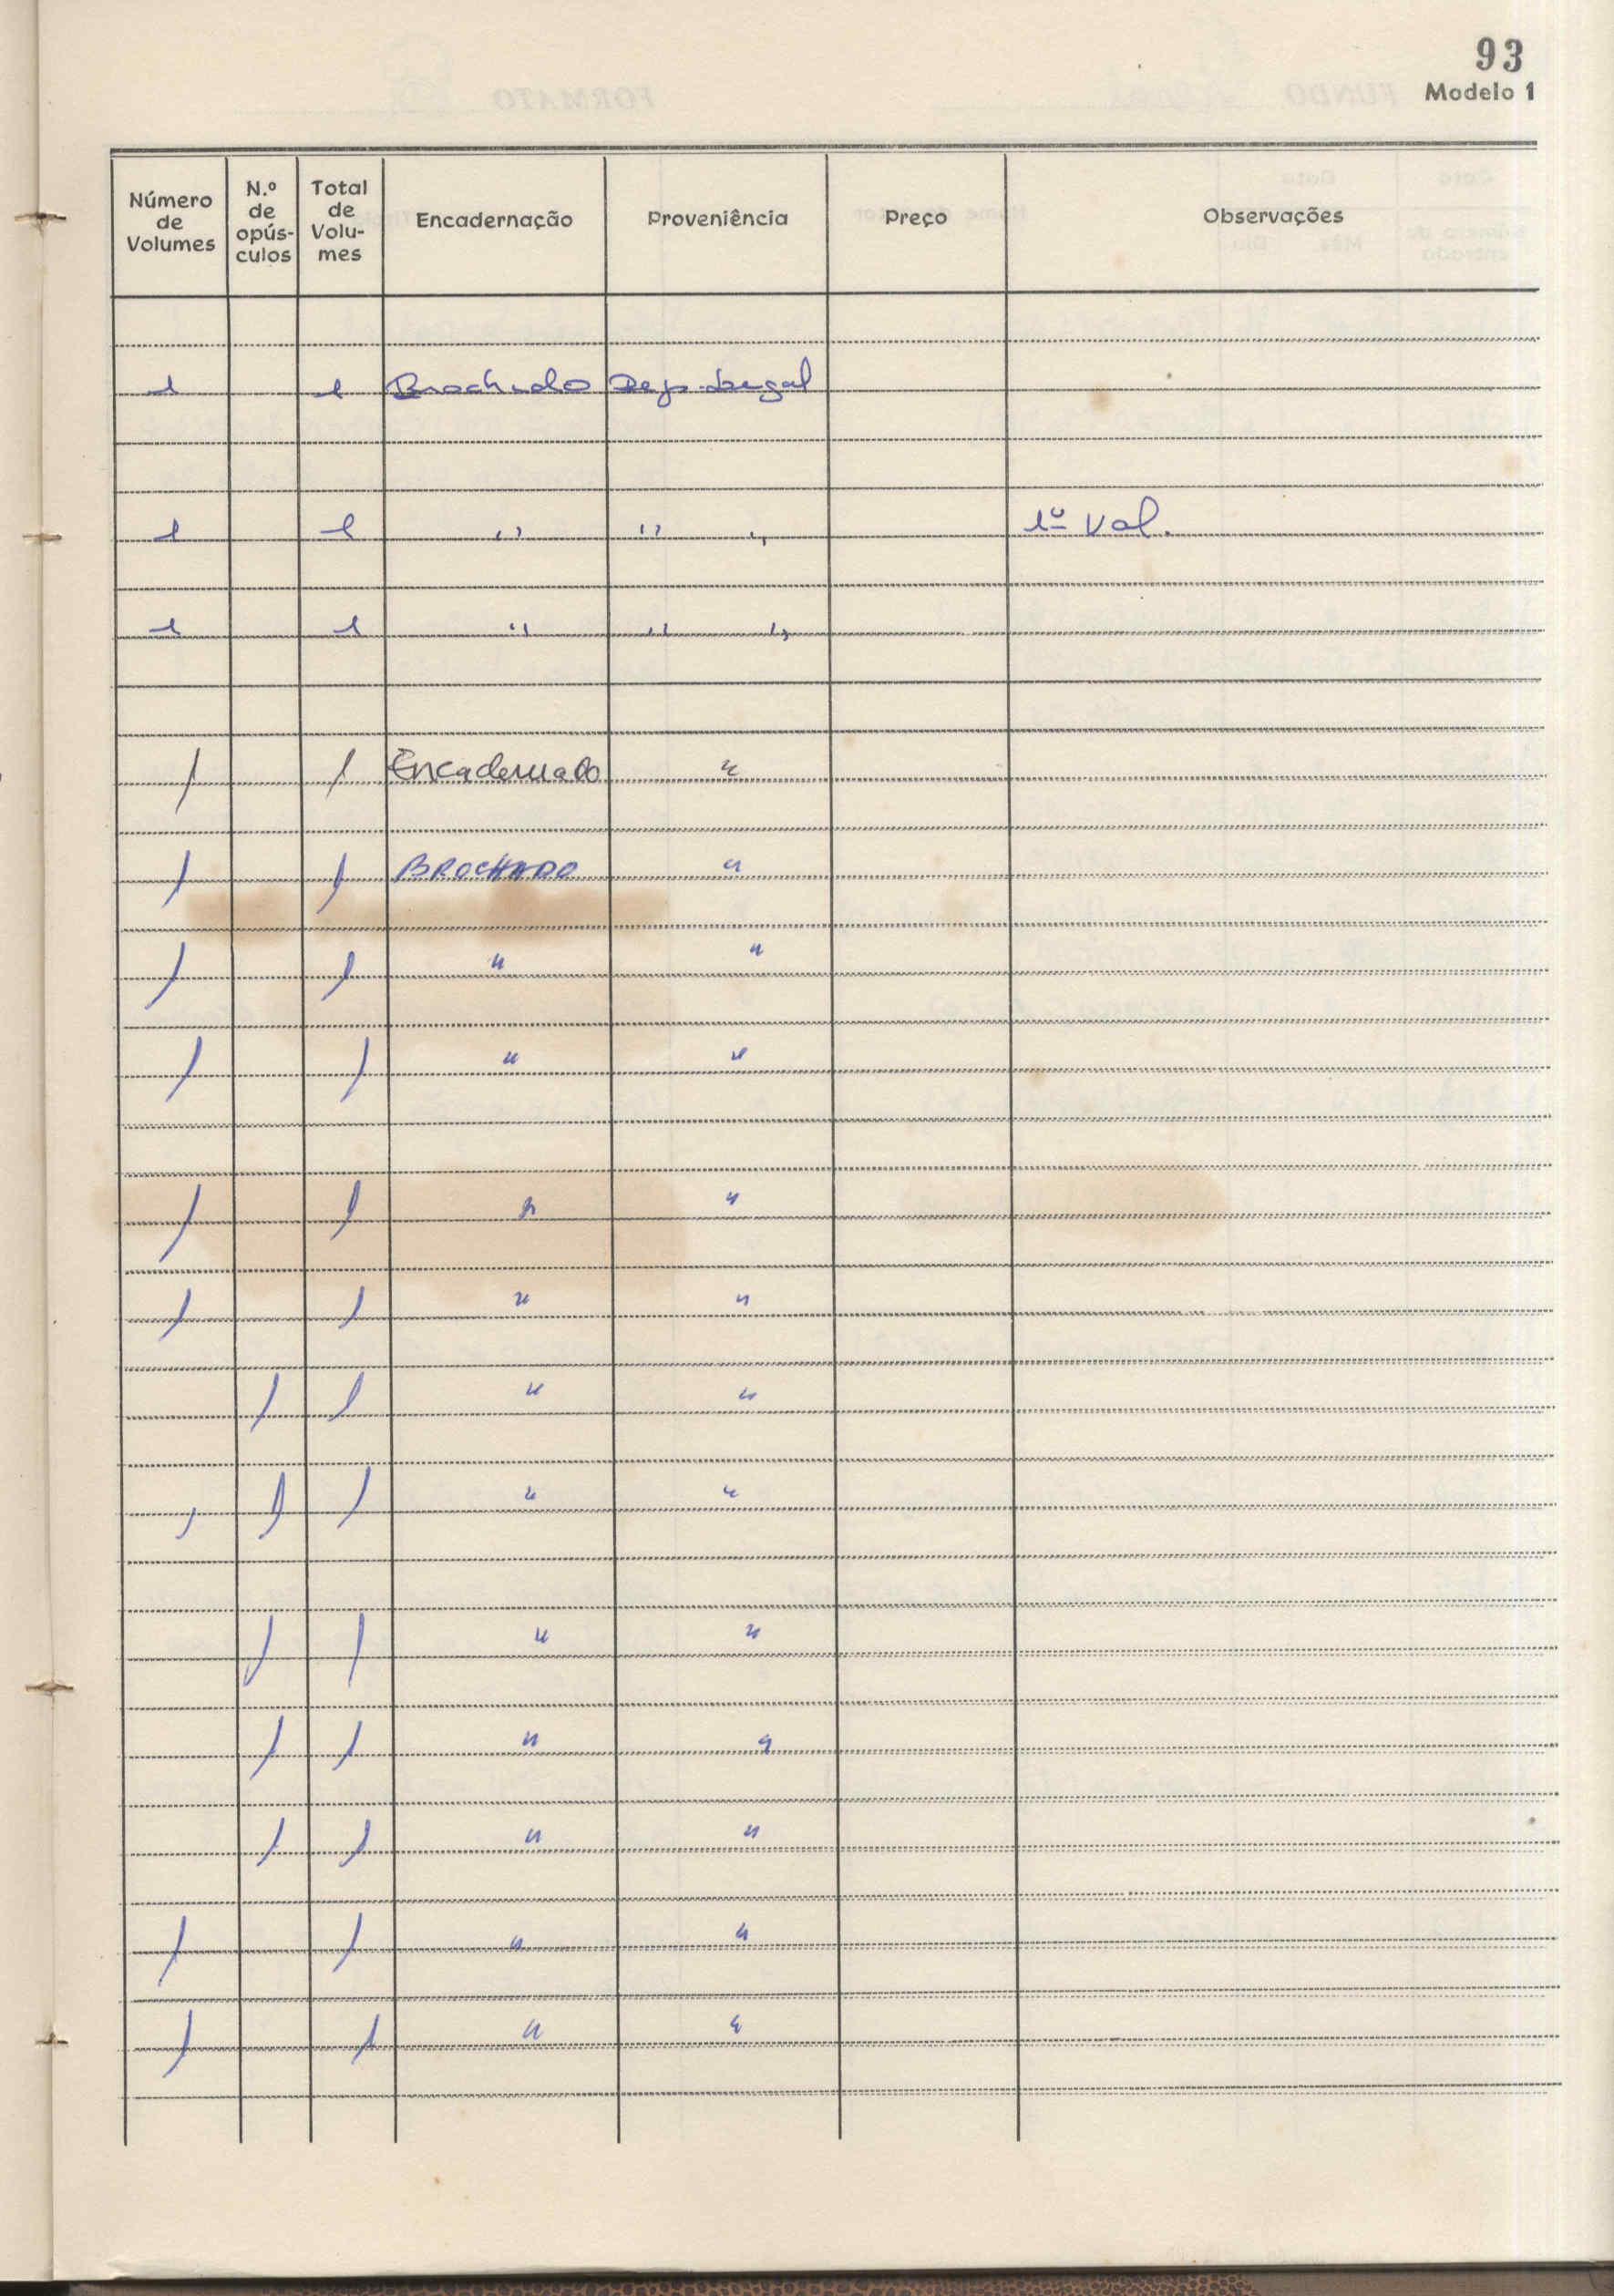 93
Modelo 1
Número de Volumes N.º de opús- culos Total de Volu- mes Encadernação Proveniência Preço Observações
1 1 Brochado Dep. Legal
1 1 " " " 1º Vol.
1 1 " " "
1 1 Encadernado "
1 1 BROCHADO "
1 1 " "
1 1 " "
1 1 " "
1 1 " "
1 1 " "
1 1 " "
1 1 " "
1 1 " "
1 1 " "
1 1 " "
1 1 " "